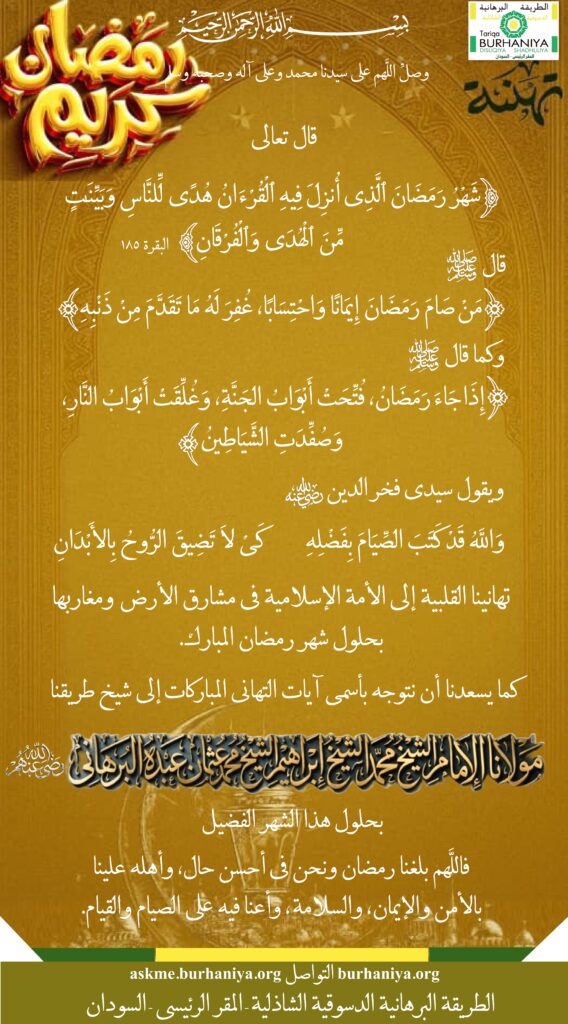 بسم الله الرحمن الرحيم
الطريقة البرهانية
الدسوقية الشاذلية
Tariqa
BURHANIYA
DISUQIYA SHADHULIYA
المقر الرئيسى - السودان
رمضان
كريم
وصلِّ اللَّهم على سيدنا محمد وعلى آله وصحبه وسلم
تهنئة
قال تعالى
﴿شَهْرُ رَمَضَانَ ٱلَّذِى أُنزِلَ فِيهِ ٱلْقُرْءَانُ هُدًى لِّلنَّاسِ وَبَيِّنَٰتٍ
مِّنَ ٱلْهُدَى وَٱلْفُرْقَانِ﴾ البقرة ١٨٥
قال ﷺ
﴿مَنْ صَامَ رَمَضَانَ إِيمَانًا وَاحْتِسَابًا، غُفِرَ لَهُ مَا تَقَدَّمَ مِنْ ذَنْبِهِ﴾
وكما قال ﷺ
﴿إِذَا جَاءَ رَمَضَانُ، فُتِّحَتْ أَبْوَابُ الجَنَّةِ، وَغُلِّقَتْ أَبْوَابُ النَّارِ،
وَصُفِّدَتِ الشَّيَاطِينُ﴾
ويقول سيدى فخر الدين رضي الله عنه
وَاللَّهُ قَدْ كَتَبَ الصِّيَامَ بِفَضْلِهِ كَىْ لاَ تَضِيقَ الرُّوحُ بِالأَبْدَانِ
تهانينا القلبية إلى الأمة الإسلامية فى مشارق الأرض ومغاربها
بحلول شهر رمضان المبارك.
كما يسعدنا أن نتوجه بأسمى آيات التهانى المباركات إلى شيخ طريقنا
مولانا الإمام الشيخ محمد الشيخ إبراهيم الشيخ محمد عثمان عبده البرهانى رضي الله عنهم
بحلول هذا الشهر الفضيل
فاللَّهم بلغنا رمضان ونحن فى أحسن حال، وأهله علينا
بالأمن والإيمان، والسلامة، وأعنا فيه على الصيام والقيام.
burhaniya.org التواصل askme.burhaniya.org
الطريقة البرهانية الدسوقية الشاذلية - المقر الرئيسى - السودان